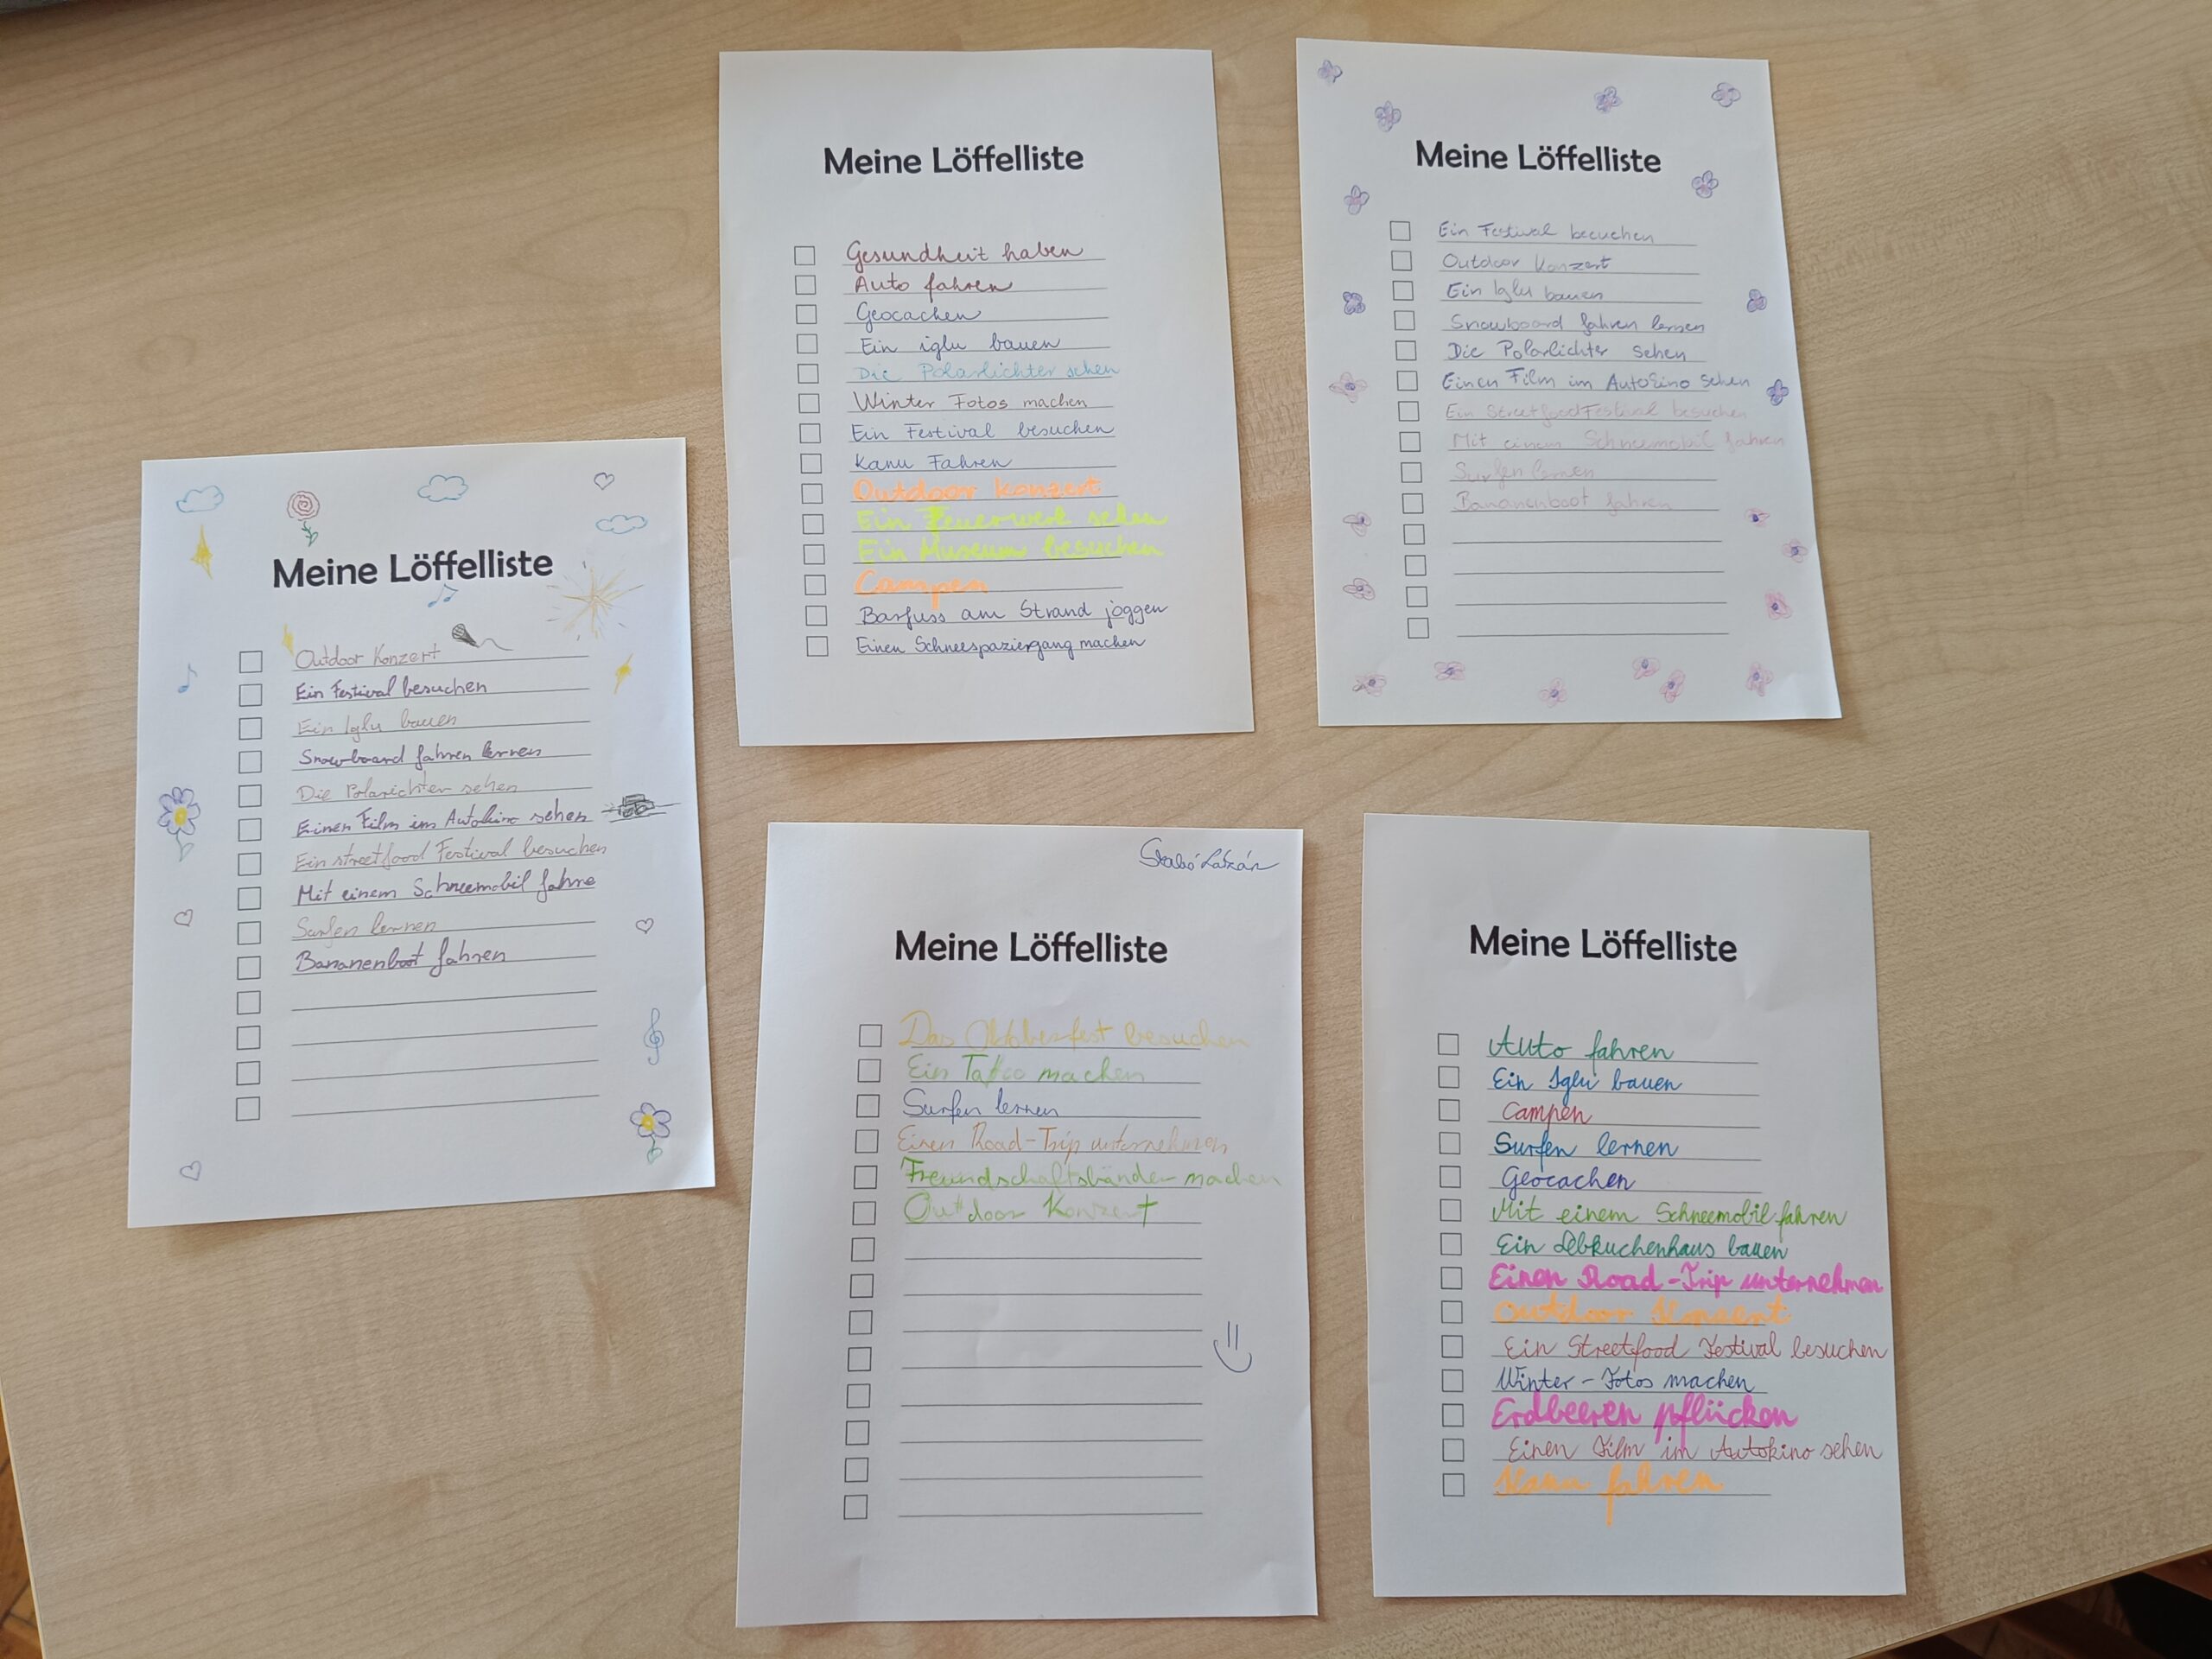 Meine Löffelliste
Outdoor Konzert
Ein Festival besuchen
Ein Iglu bauen
Snowboard fahren lernen
Die Polarichter sehen
Einen Film im Autokino sehen
Ein streetfood Festival besuchen
Mit einem Schneemobil fahre
Surfen lernen
Bananenboot fahren
Meine Löffelliste
Gesundheit haben
Auto fahren
Geocachen
Ein iglu bauen
Die Polarlichter sehen
Winter Fotos machen
Ein Festival besuchen
Kanu Fahren
Outdoor Konzert
Ein Feuerwerk sehen
Ein Museum besuchen
Campen
Barfuss am Strand joggen
Einen Schneespaziergang machen
Meine Löffelliste
Ein Festival besuchen
Outdoor Konzert
Ein Iglu bauen
Snowboard fahren lernen
Die Polarlichter sehen
Einen Film im Autokino sehen
Ein StreetfoodFestival besuchen
Mit einem Schneemobil fahren
Surfen lernen
Bananenboot fahren
Szabó
Meine Löffelliste
Das Oktoberfest besuchen
Ein Tattoo machen
Surfen lernen
Einen Road-Trip unternehmen
Freundschaftsbänder machen
Outdoor Konzert
Meine Löffelliste
Auto fahren
Ein Iglu bauen
Campen
Surfen lernen
Geocachen
Mit einem Schneemobil fahren
Ein Lebkuchenhaus bauen
Einen Road-Trip unternehmen
Outdoor Konzert
Ein Streetfood Festival besuchen
Winter-Fotos machen
Erdbeeren pflücken
Einen Film im Autokino sehen
Kanu fahren